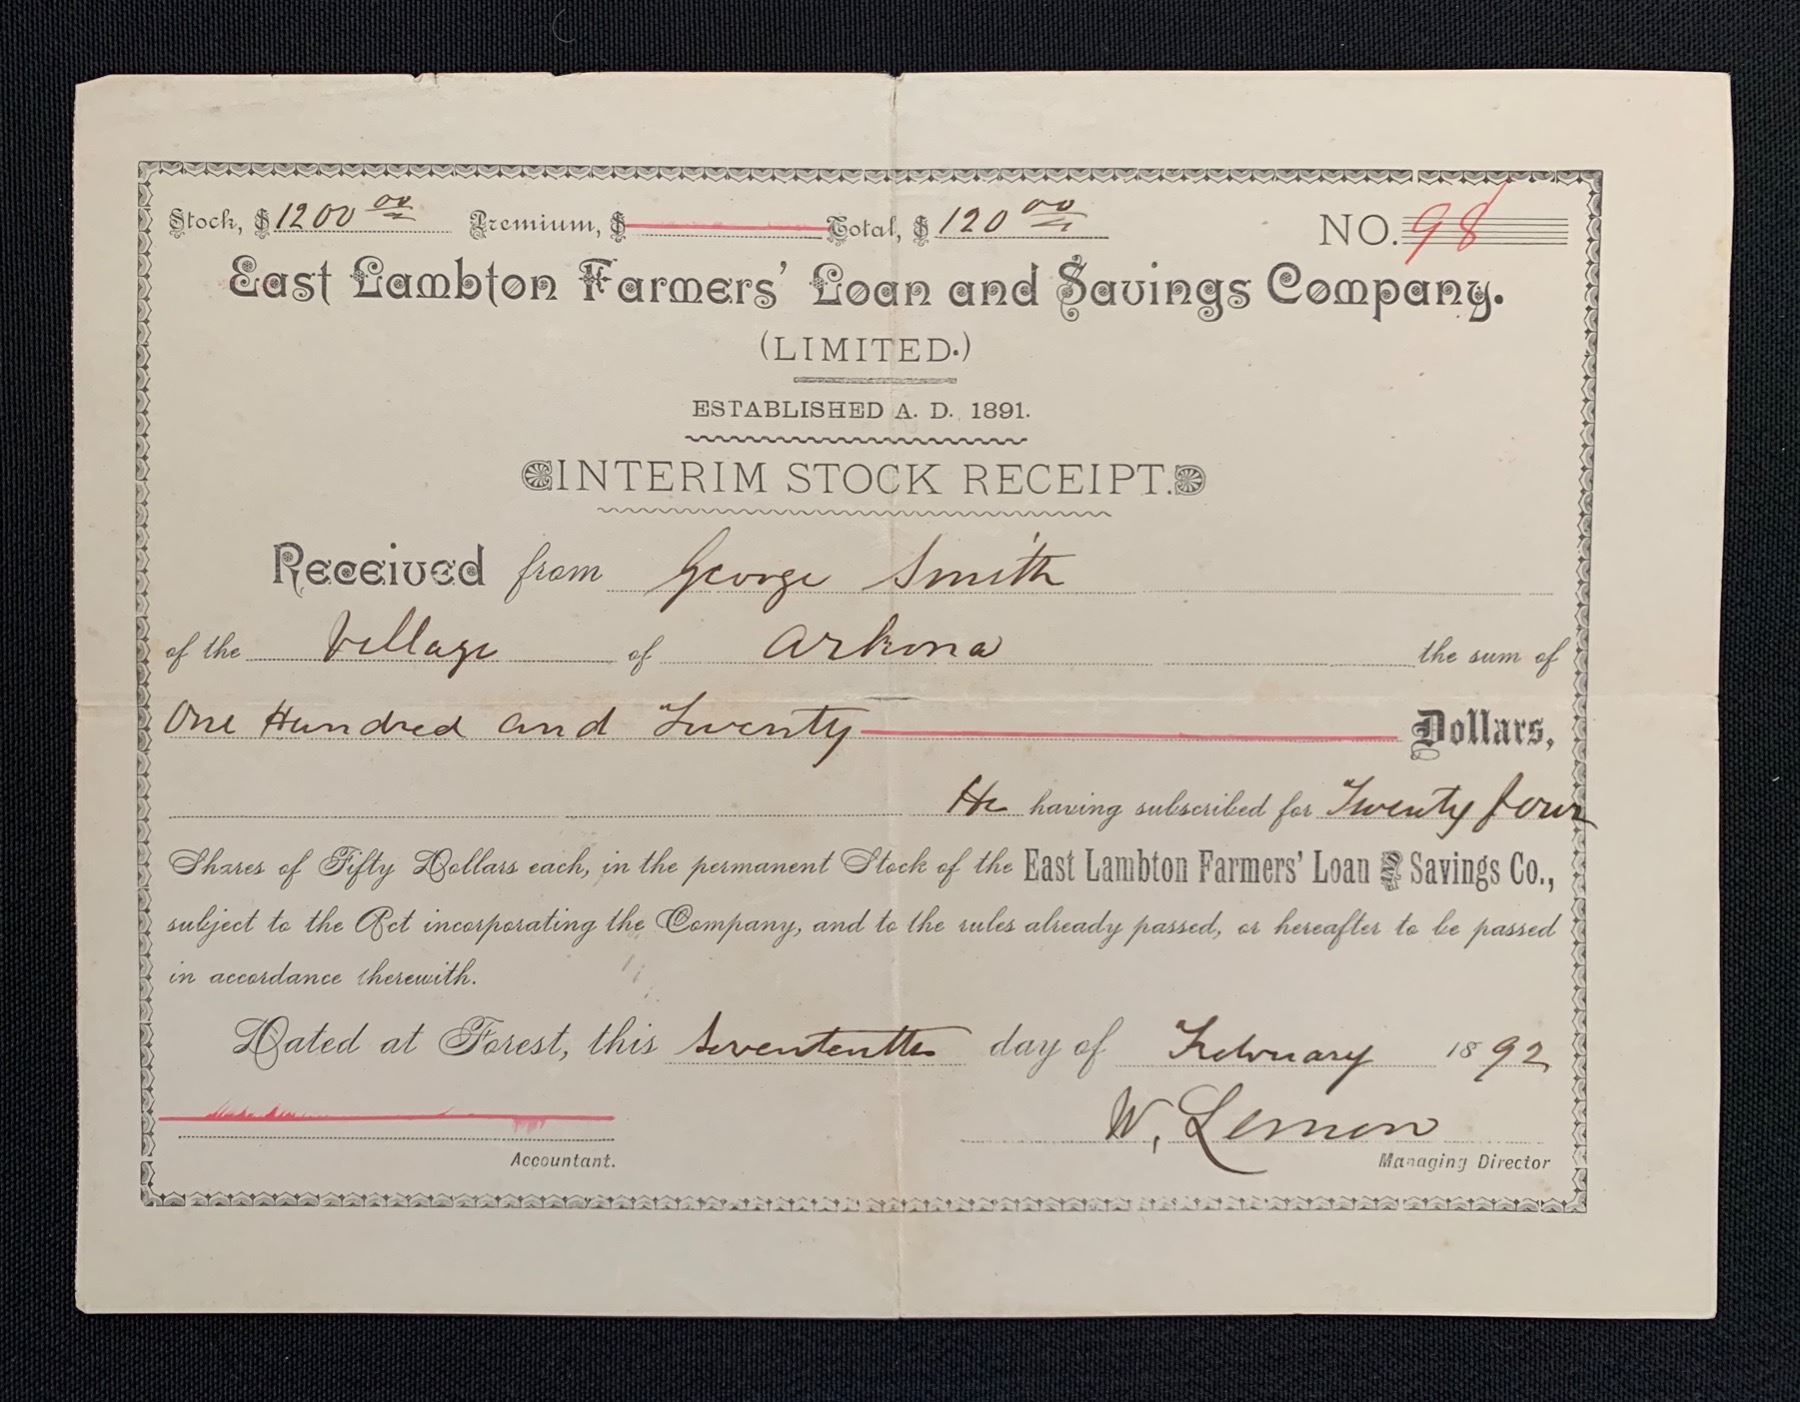 Stock, $1200 00 Premium, $ Total, $ 120 00 NO. 98
East Lambton Farmers' Loan and Savings Company.
(LIMITED.)
ESTABLISHED A. D. 1891.
INTERIM STOCK RECEIPT.
Received from George Smith
of the Village of Arkona the sum of
One Hundred and Twenty Dollars,
He having subscribed for Twenty four
Shares of Fifty Dollars each, in the permanent Stock of the East Lambton Farmers' Loan and Savings Co.,
subject to the Act incorporating the Company, and to the rules already passed, or hereafter to be passed
in accordance therewith.
Dated at Forest, this Seventeenth day of February 1892
W. Lemon
Accountant. Managing Director